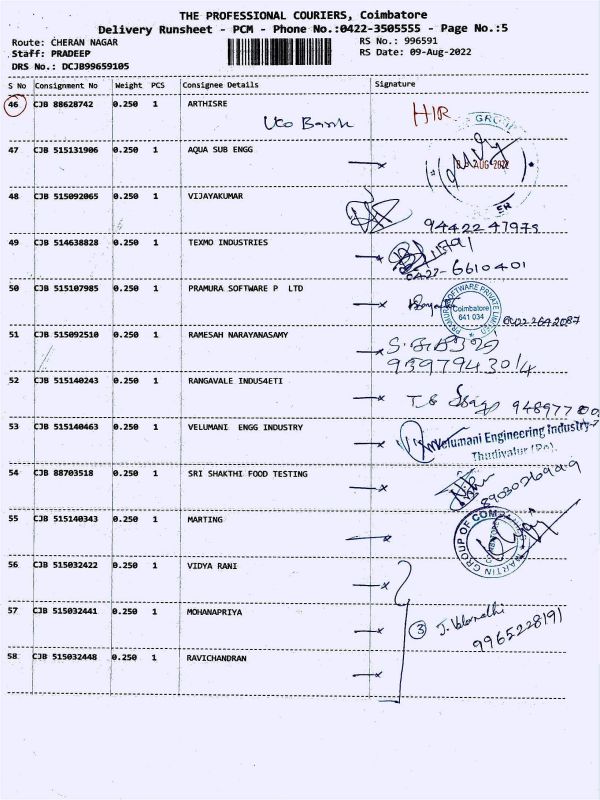 THE PROFESSIONAL COURIERS, Coimbatore
Delivery Runsheet - PCM - Phone No.:0422-3505555 - Page No.:5
Route: CHERAN NAGAR RS No.: 996591
Staff: PRADEEP RS Date: 09-Aug-2022
DRS No.: DCJB99659105
S No Consignment No Weight PCS Consignee Details Signature
46 CJB 88628742 0.250 1 ARTHISRE
Uco Bank HIR
GROUP
47 CJB 515131906 0.250 1 AQUA SUB ENGG
AUG 2022
ER
48 CJB 515092065 0.250 1 VIJAYAKUMAR
9442247975
49 CJB 514638828 0.250 1 TEXMO INDUSTRIES
0422-6610401
50 CJB 515107985 0.250 1 PRAMURA SOFTWARE P LTD
PRAMURA SOFTWARE PRIVATE LIMITED
Coimbatore
641 034
51 CJB 515092510 0.250 1 RAMESAH NARAYANASAMY
9597943014
52 CJB 515140243 0.250 1 RANGAVALE INDUS4ETI
53 CJB 515140463 0.250 1 VELUMANI ENGG INDUSTRY
Velumani Engineering Industry
Thudiyalur (Po).
54 CJB 88703518 0.250 1 SRI SHAKTHI FOOD TESTING
55 CJB 515140343 0.250 1 MARTING
MARTIN GROUP OF COMPANIES
56 CJB 515032422 0.250 1 VIDYA RANI
57 CJB 515032441 0.250 1 MOHANAPRIYA
3 J. Valarmathi
9965228191
58 CJB 515032448 0.250 1 RAVICHANDRAN